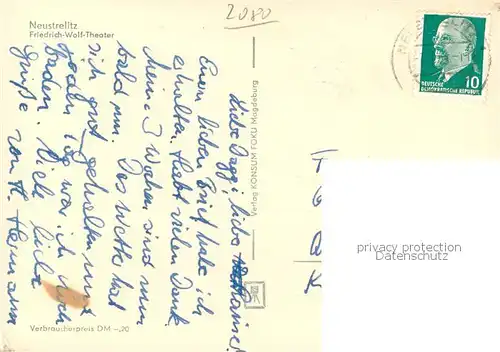 2080
Neustrelitz
Friedrich-Wolf-Theater
DEUTSCHE
DEMOKRATISCHE REPUBLIK
10
Verlag KONSUM FOKU Magdeburg
Liebe Daggi, liebe
Euren lieben Brief habe ich
erhalten. Habt vielen Dank.
Meine 3 Wochen sind nun
bald um. Das Wetter hat
sich gut gehalten und
jeden Tag war ich noch
baden. Viele liebe
Grüße von H. Heimann
privacy protection
Verbraucherpreis DM –,20